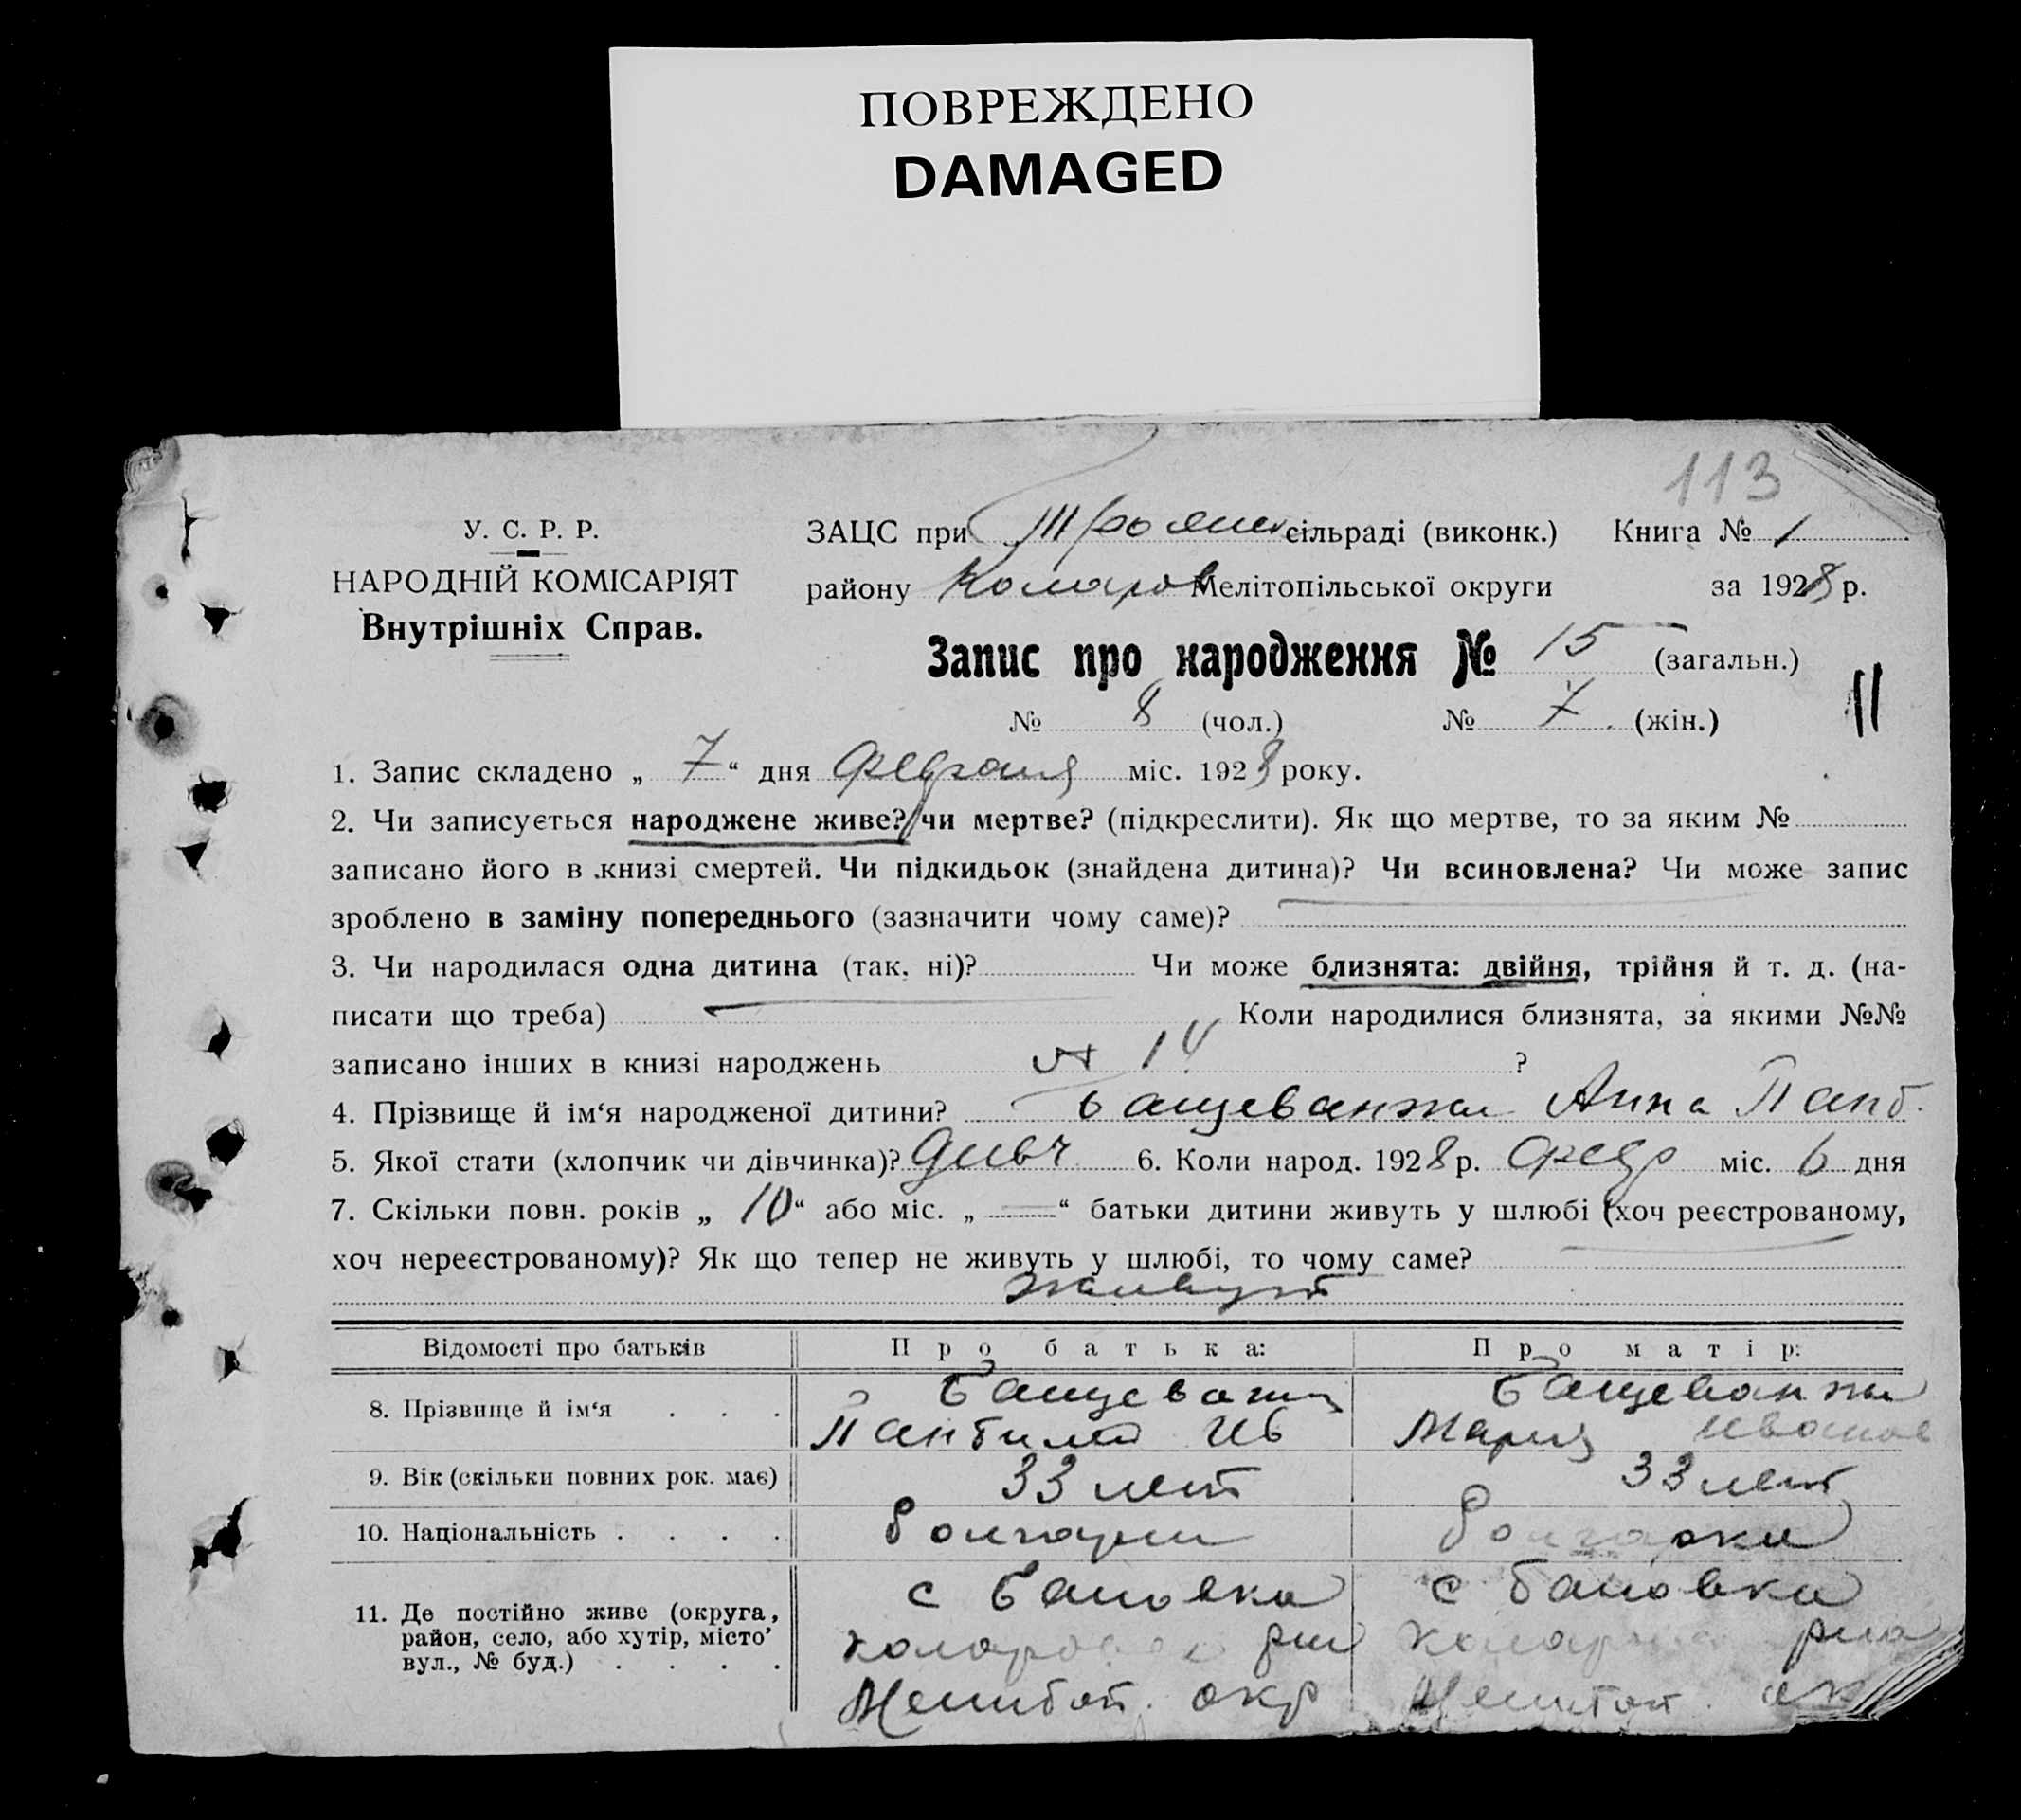 ПОВРЕЖДЕНО
DAMAGED
113
У. С. Р. Р.
НАРОДНІЙ КОМІСАРІЯТ
Внутрішніх Справ.
ЗАЦС при Троян сільраді (виконк.) Книга № 1
району Коларов Мелітопільської округи за 1928 р.
Запис про народження № 15 (загальн.)
№ 8 (чол.) № 7 (жін.) 11
1. Запис складено „ 7 “ дня Февраля міс. 1928 року.
2. Чи записується народжене живе? чи мертве? (підкреслити). Як що мертве, то за яким №
записано його в книзі смертей. Чи підкидьок (знайдена дитина)? Чи всиновлена? Чи може запис
зроблено в заміну попереднього (зазначити чому саме)?
3. Чи народилася одна дитина (так, ні)? Чи може близнята: двійня, трійня й т. д. (на-
писати що треба) Коли народилися близнята, за якими №№
записано інших в книзі народжень № 14 ?
4. Прізвище й ім‘я народженої дитини? Бащеванжи Анна Пант.
5. Якої стати (хлопчик чи дівчинка)? дивч 6. Коли народ. 1928 р. февр міс. 6 дня
7. Скільки повн. років „ 10 “ або міс. „ — “ батьки дитини живуть у шлюбі (хоч реєстрованому,
хоч нереєстрованому)? Як що тепер не живуть у шлюбі, то чому саме?
живут
Відомості про батьків Про батька: Про матір:
8. Прізвище й ім‘я . . . Бащеванжи Бащеванжи
Пантилей Ив Мария Иванов
9. Вік (скільки повних рок. має) 33 лет 33 лет
10. Національність . . . . болгарин болгарка
11. Де постійно живе (округа, с Бановка с Бановка
район, село, або хутір, місто’ коларовск рна коларовск рна
вул., № буд.) . . . . Мелитоп. окр Мелитоп. ок